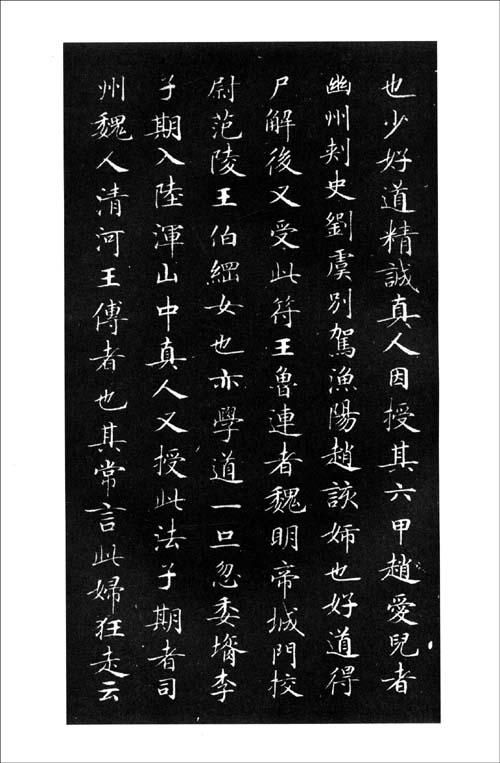 也少好道精誠真人因授其六甲趙愛兒者
幽州刾史劉虞別駕漁陽趙該姊也好道得
尸解後又受此符王魯連者魏明帝城門挍
尉范陵王伯綱女也亦學道一旦忽委壻李
子期入陸渾山中真人又授此法子期者司
州魏人清河王傅者也其常言此婦狂走云